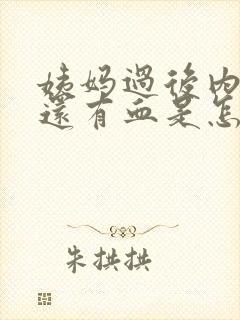 姨妈過後内
還有血是怎
朱拱拱